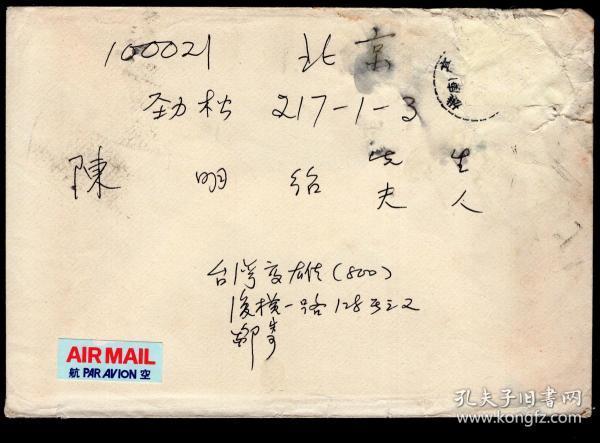 100021 北京
劲松 217-1-3
陳明绍 先生
夫人
台灣高雄(800)
復橫一路128号之2
鄭
AIR MAIL
航 PAR AVION 空
孔夫子旧书网
www.kongfz.com